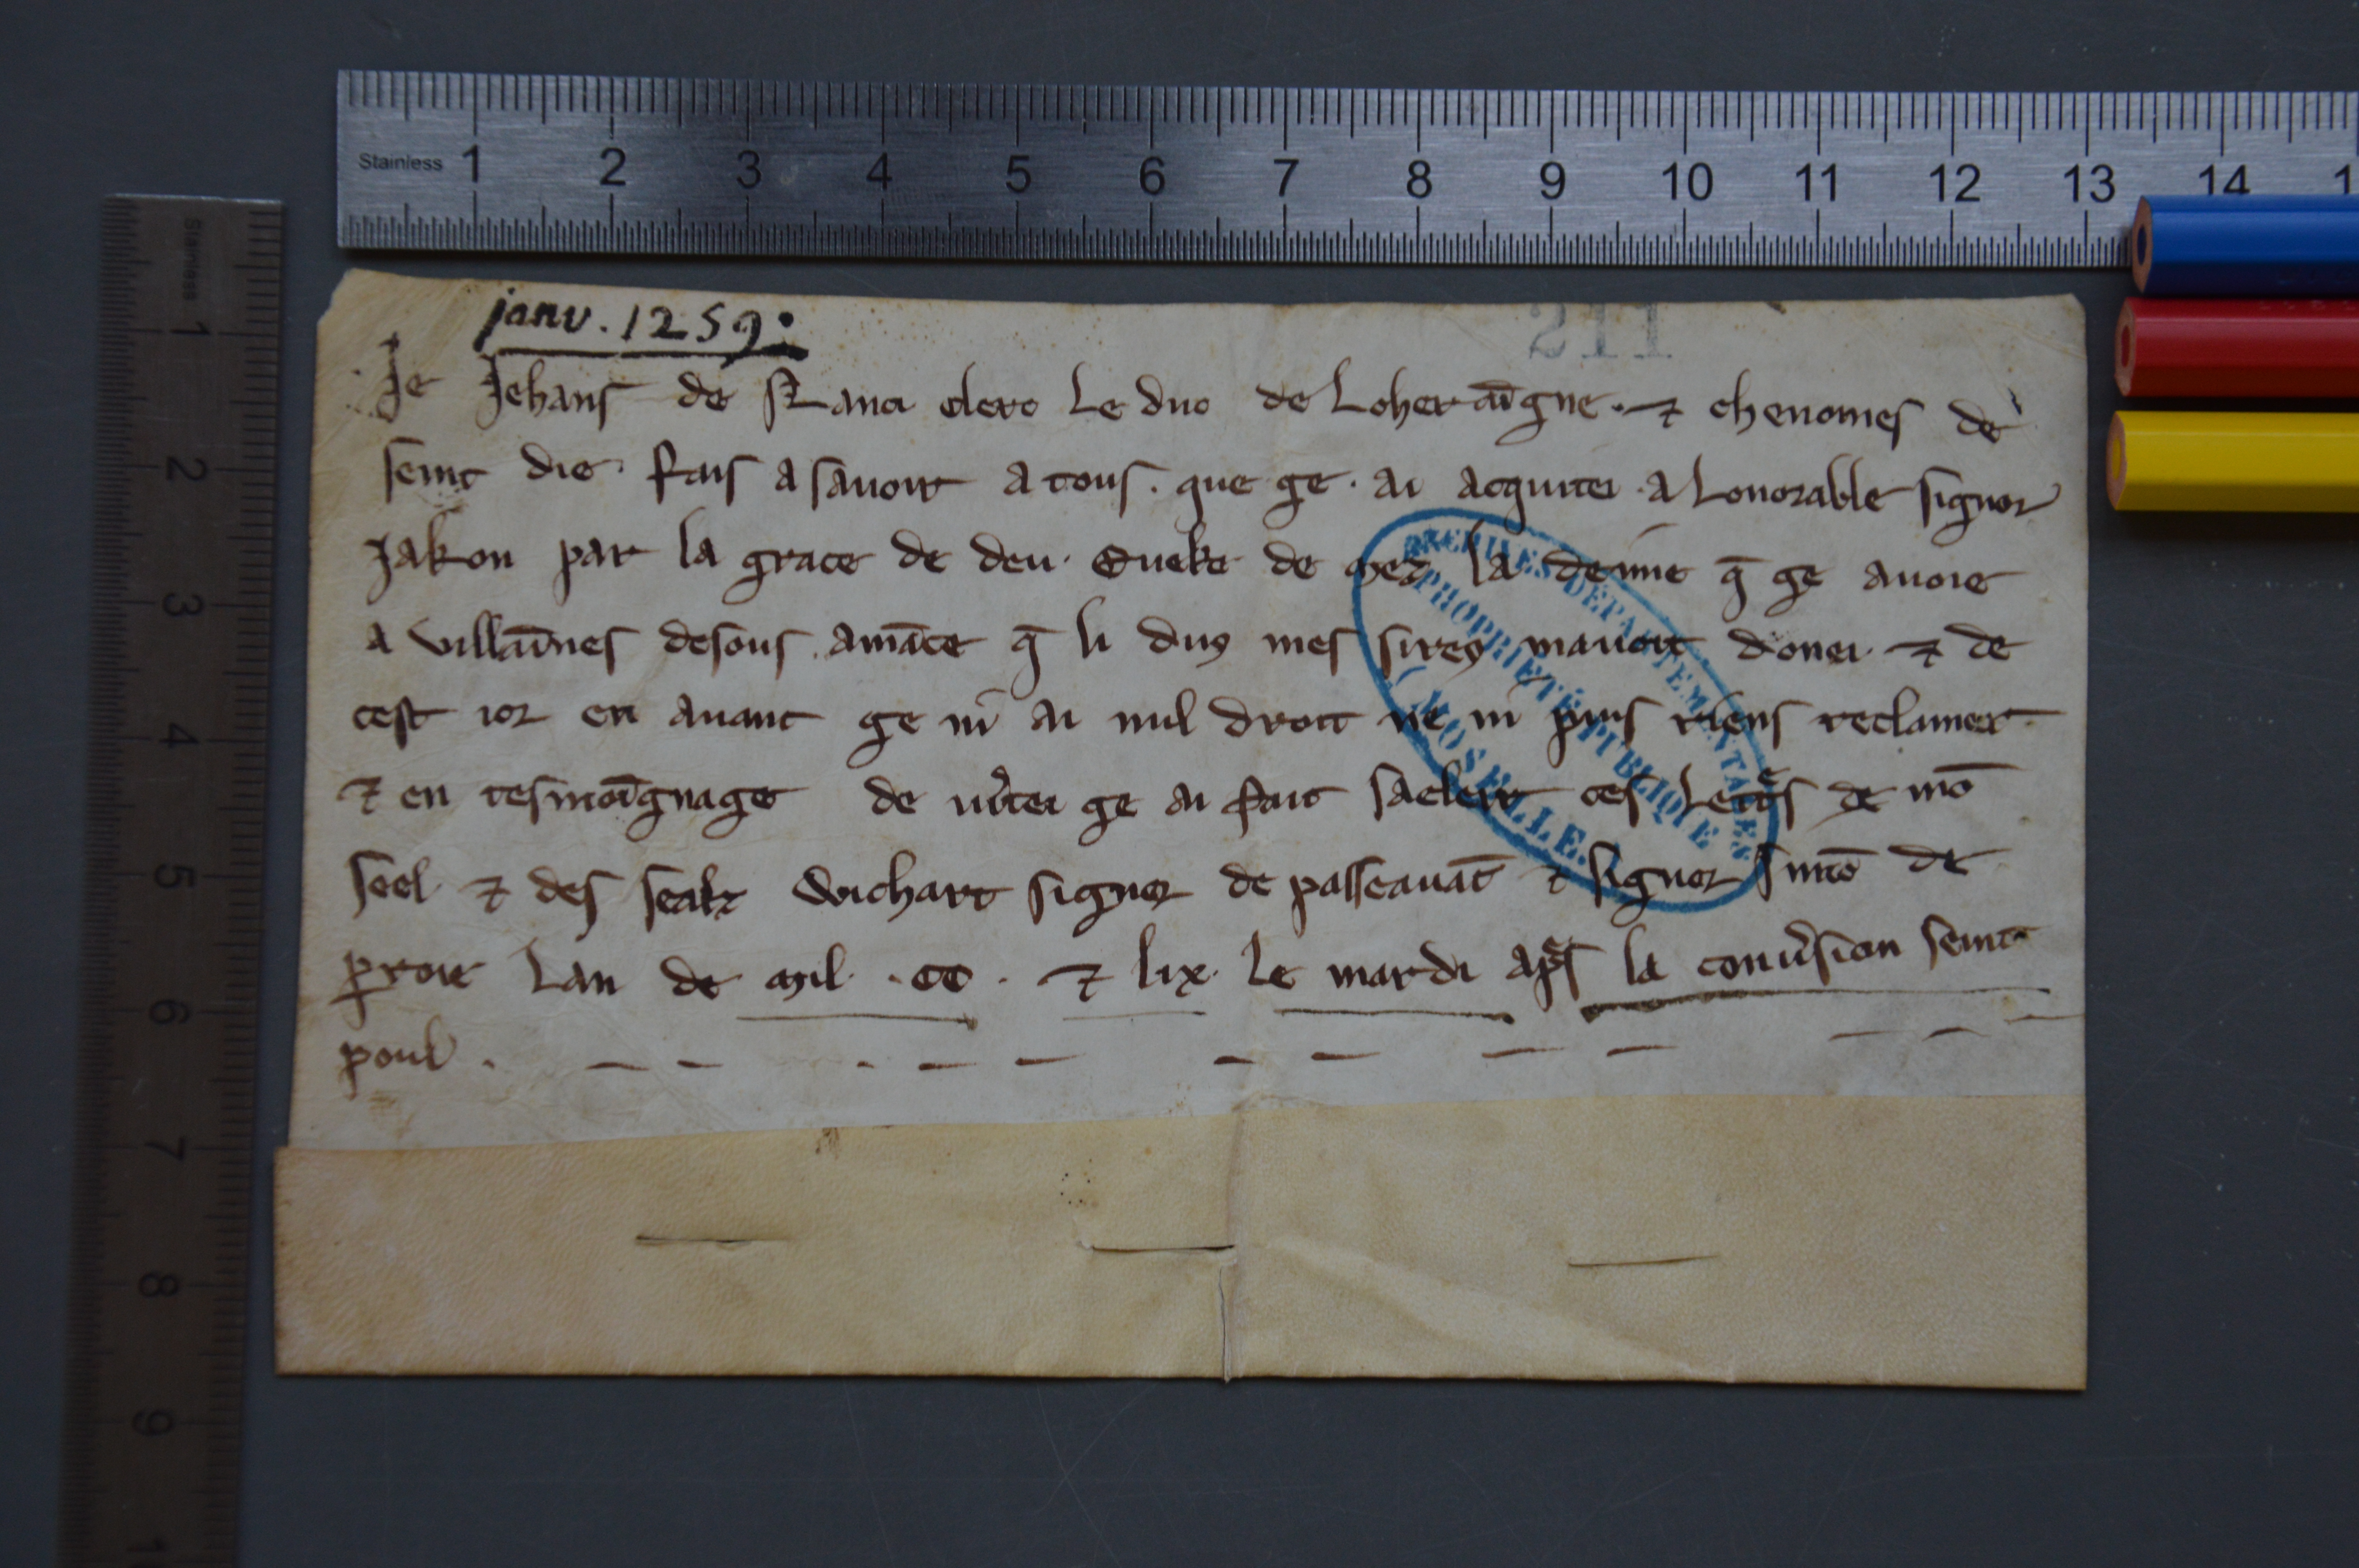 Stainless 1 2 3 4 5 6 7 8 9 10 11 12 13 14 1
Stainless 1 2 3 4 5 6 7 8 9
janv. 1259.
211
Je Jehans de clerc Le duc de Loheraīgne . ⁊ chenomes de
seint die . fais a sauoir a tous . que ge . ai acquitei . a Lonorable signor
Jakon par la grace de deu . Eueke de mez la deīme q̄ ge auoie
a villāines desous amāce q̄ li dus mes sires mauoit donei . ⁊ de
cest ior en auant ge ni ai nul droit ne ni puis riens reclamer
⁊ en tesmoīgnage de u̍itei ge ai fait saeleir ces Lettͤs de mō
seel . ⁊ des seals Wichart signor de passeauāt ⁊ signor simō de
proie Lan de mil . cc . ⁊ lix . le mardi apͤs la conu̍sion seint
poul .
ARCHIVES DÉPARTEMENTALES
PROPRIÉTÉ PUBLIQUE
(MOSELLE.)